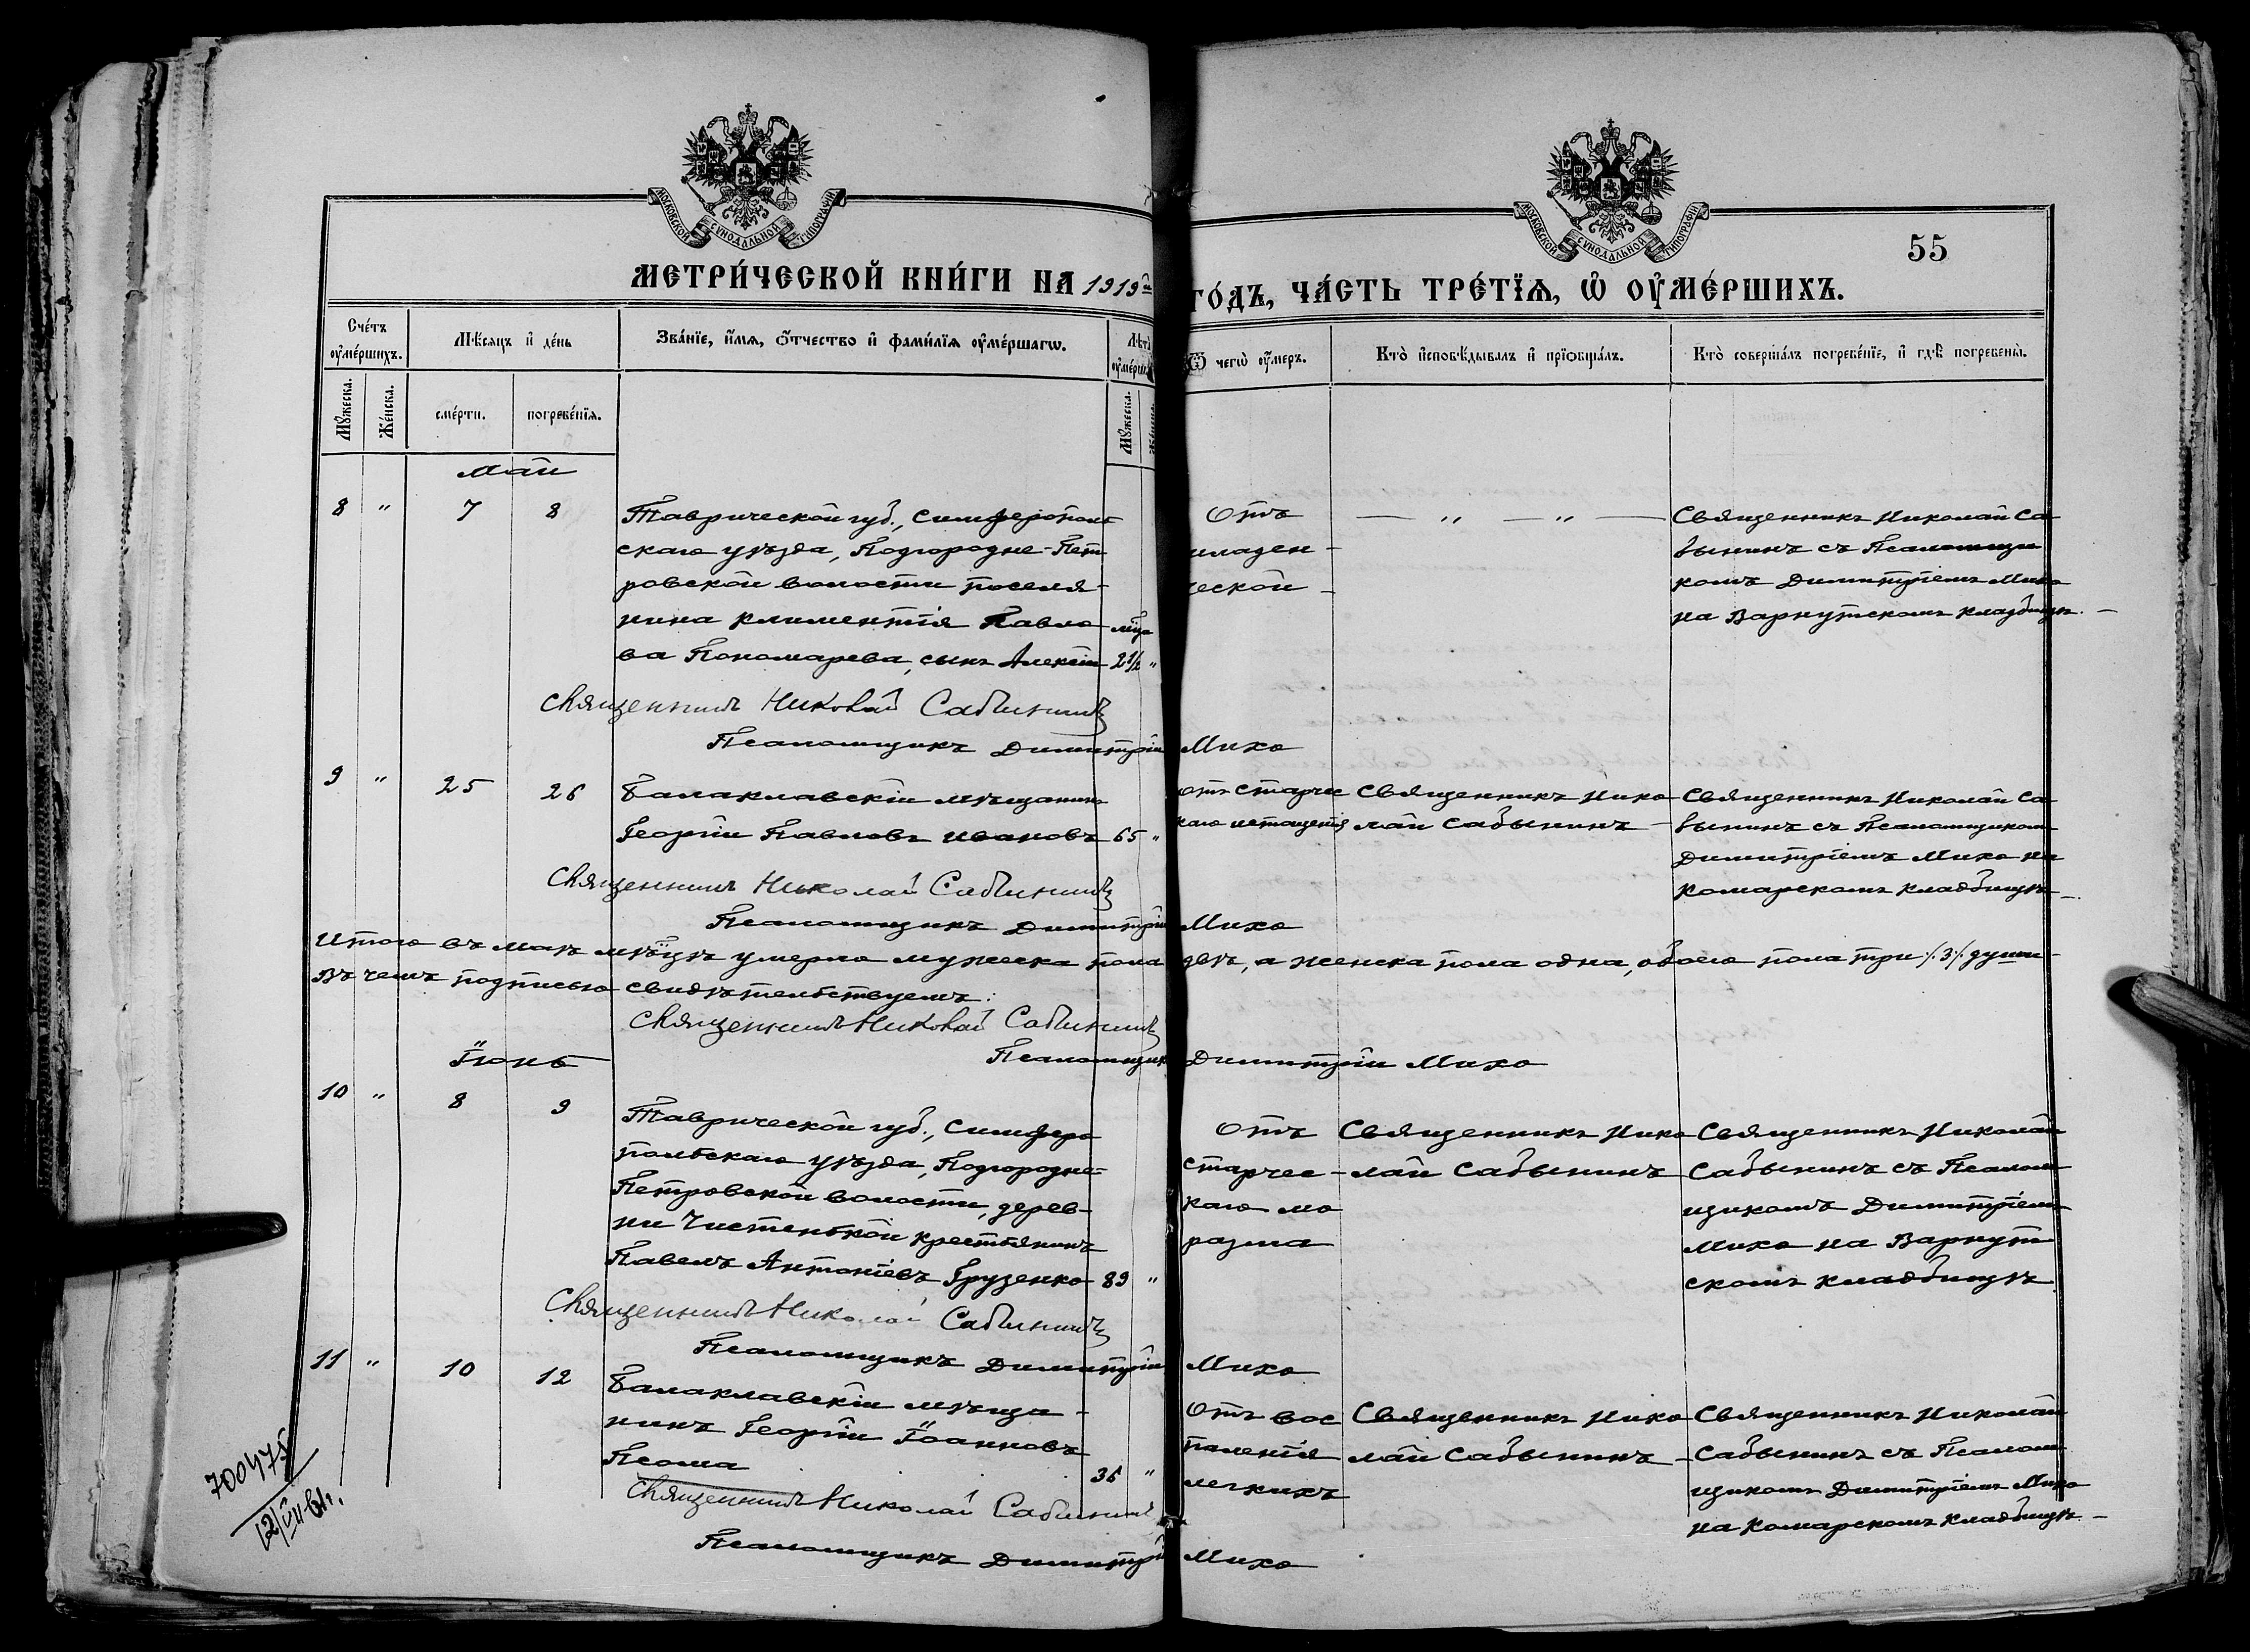 МОСКОВСКОЙ СУНОДАЛЬНОЙ ТИПОГРАФІИ
МОСКОВСКОЙ СУНОДАЛЬНОЙ ТИПОГРАФІИ
55
МЕТРИ́ЧЕСКОЙ КНИ́ГИ НА 1919й ГО́ДЪ, ЧА́СТЬ ТРЕ́ТЇѦ, Ѡ҆ ОУ҆МЕ́РШИХЪ.
Сче́тъ оу҆ме́ршихъ.
Мѣ́сяцъ и҆ де́нь
Зва́нїе, и҆́мѧ, ѻ҆́тчество и҆ фами́лїѧ оу҆ме́ршагѡ.
Лѣ́та оу҆ме́рш
Ѿ чегѡ̀ оу҆́меръ.
Кто̀ и҆сповѣ́дывалъ и҆ прїѡбща́лъ.
Кто̀ соверша́лъ погребе́нїе, и҆ гдѣ̀ погребены̀.
Мꙋ́жеска.
Же́нска.
сме́рти.
погребе́нїѧ.
Мꙋ́жеска.
Май
8 " 7 8
Таврической губ., Симферополь-
скаго уѣзда, Подгородне-Пет-
ровской волости поселя-
нина Климентія Павло-
ва Пономарева, сынъ Алексій
мѣц.
2½ "
Отъ
младен-
ческой
— " — " —
Священникъ Николай Са-
бынинъ съ Псаломщи
комъ Димитріемъ Михо
на Варнутскомъ кладбищѣ.
Священникъ Николай Сабынинъ
Псаломщикъ Димитрій Михо
9 " 25 26
Балаклавскій мѣщанинъ
Георгій Павловъ Ивановъ 65 "
отъ старчес
каго истощенія
Священникъ Нико
лай Сабынинъ
Священникъ Николай Са
бынинъ съ Псаломщикомъ
Димитріемъ Михо на
Комарскомъ кладбищѣ.
Священникъ Николай Сабынинъ
Псаломщикъ Димитрій Михо
Итого въ маѣ мѣсяцѣ умерло мужеска пола двѣ, а женска пола одна, обоего пола три /3/ души
Въ чемъ подписью свидѣтельствуемъ:
Священникъ Николай Сабынинъ
Псаломщикъ Димитрій Михо
Іюнь
10 " 8 9
Таврической губ., Симферо
польскаго уѣзда, Подгородне-
Петровской волости, дерев-
ни Чистенькой крестьянинъ
Павелъ Антоніевъ Грузенко 89 "
Отъ
старчес-
каго ма
разма
Священникъ Нико
лай Сабынинъ
Священникъ Николай
Сабынинъ съ Псалом
щикомъ Димитріемъ
Михо на Варнут
скомъ кладбищѣ
Священникъ Николай Сабынинъ
Псаломщикъ Димитрій Михо
11 " 10 12
Балаклавскій мѣща-
нинъ Георгій Іоанновъ
Псома 36 "
Отъ вос
паленія
легкихъ
Священникъ Нико
лай Сабынинъ
Священникъ Николай
Сабынинъ съ Псалом
щикомъ Димитріемъ Михо
на Комарскомъ кладбищѣ.
Священникъ Николай Сабынинъ
Псаломщикъ Димитрій Михо
700475
12/VII-61г.